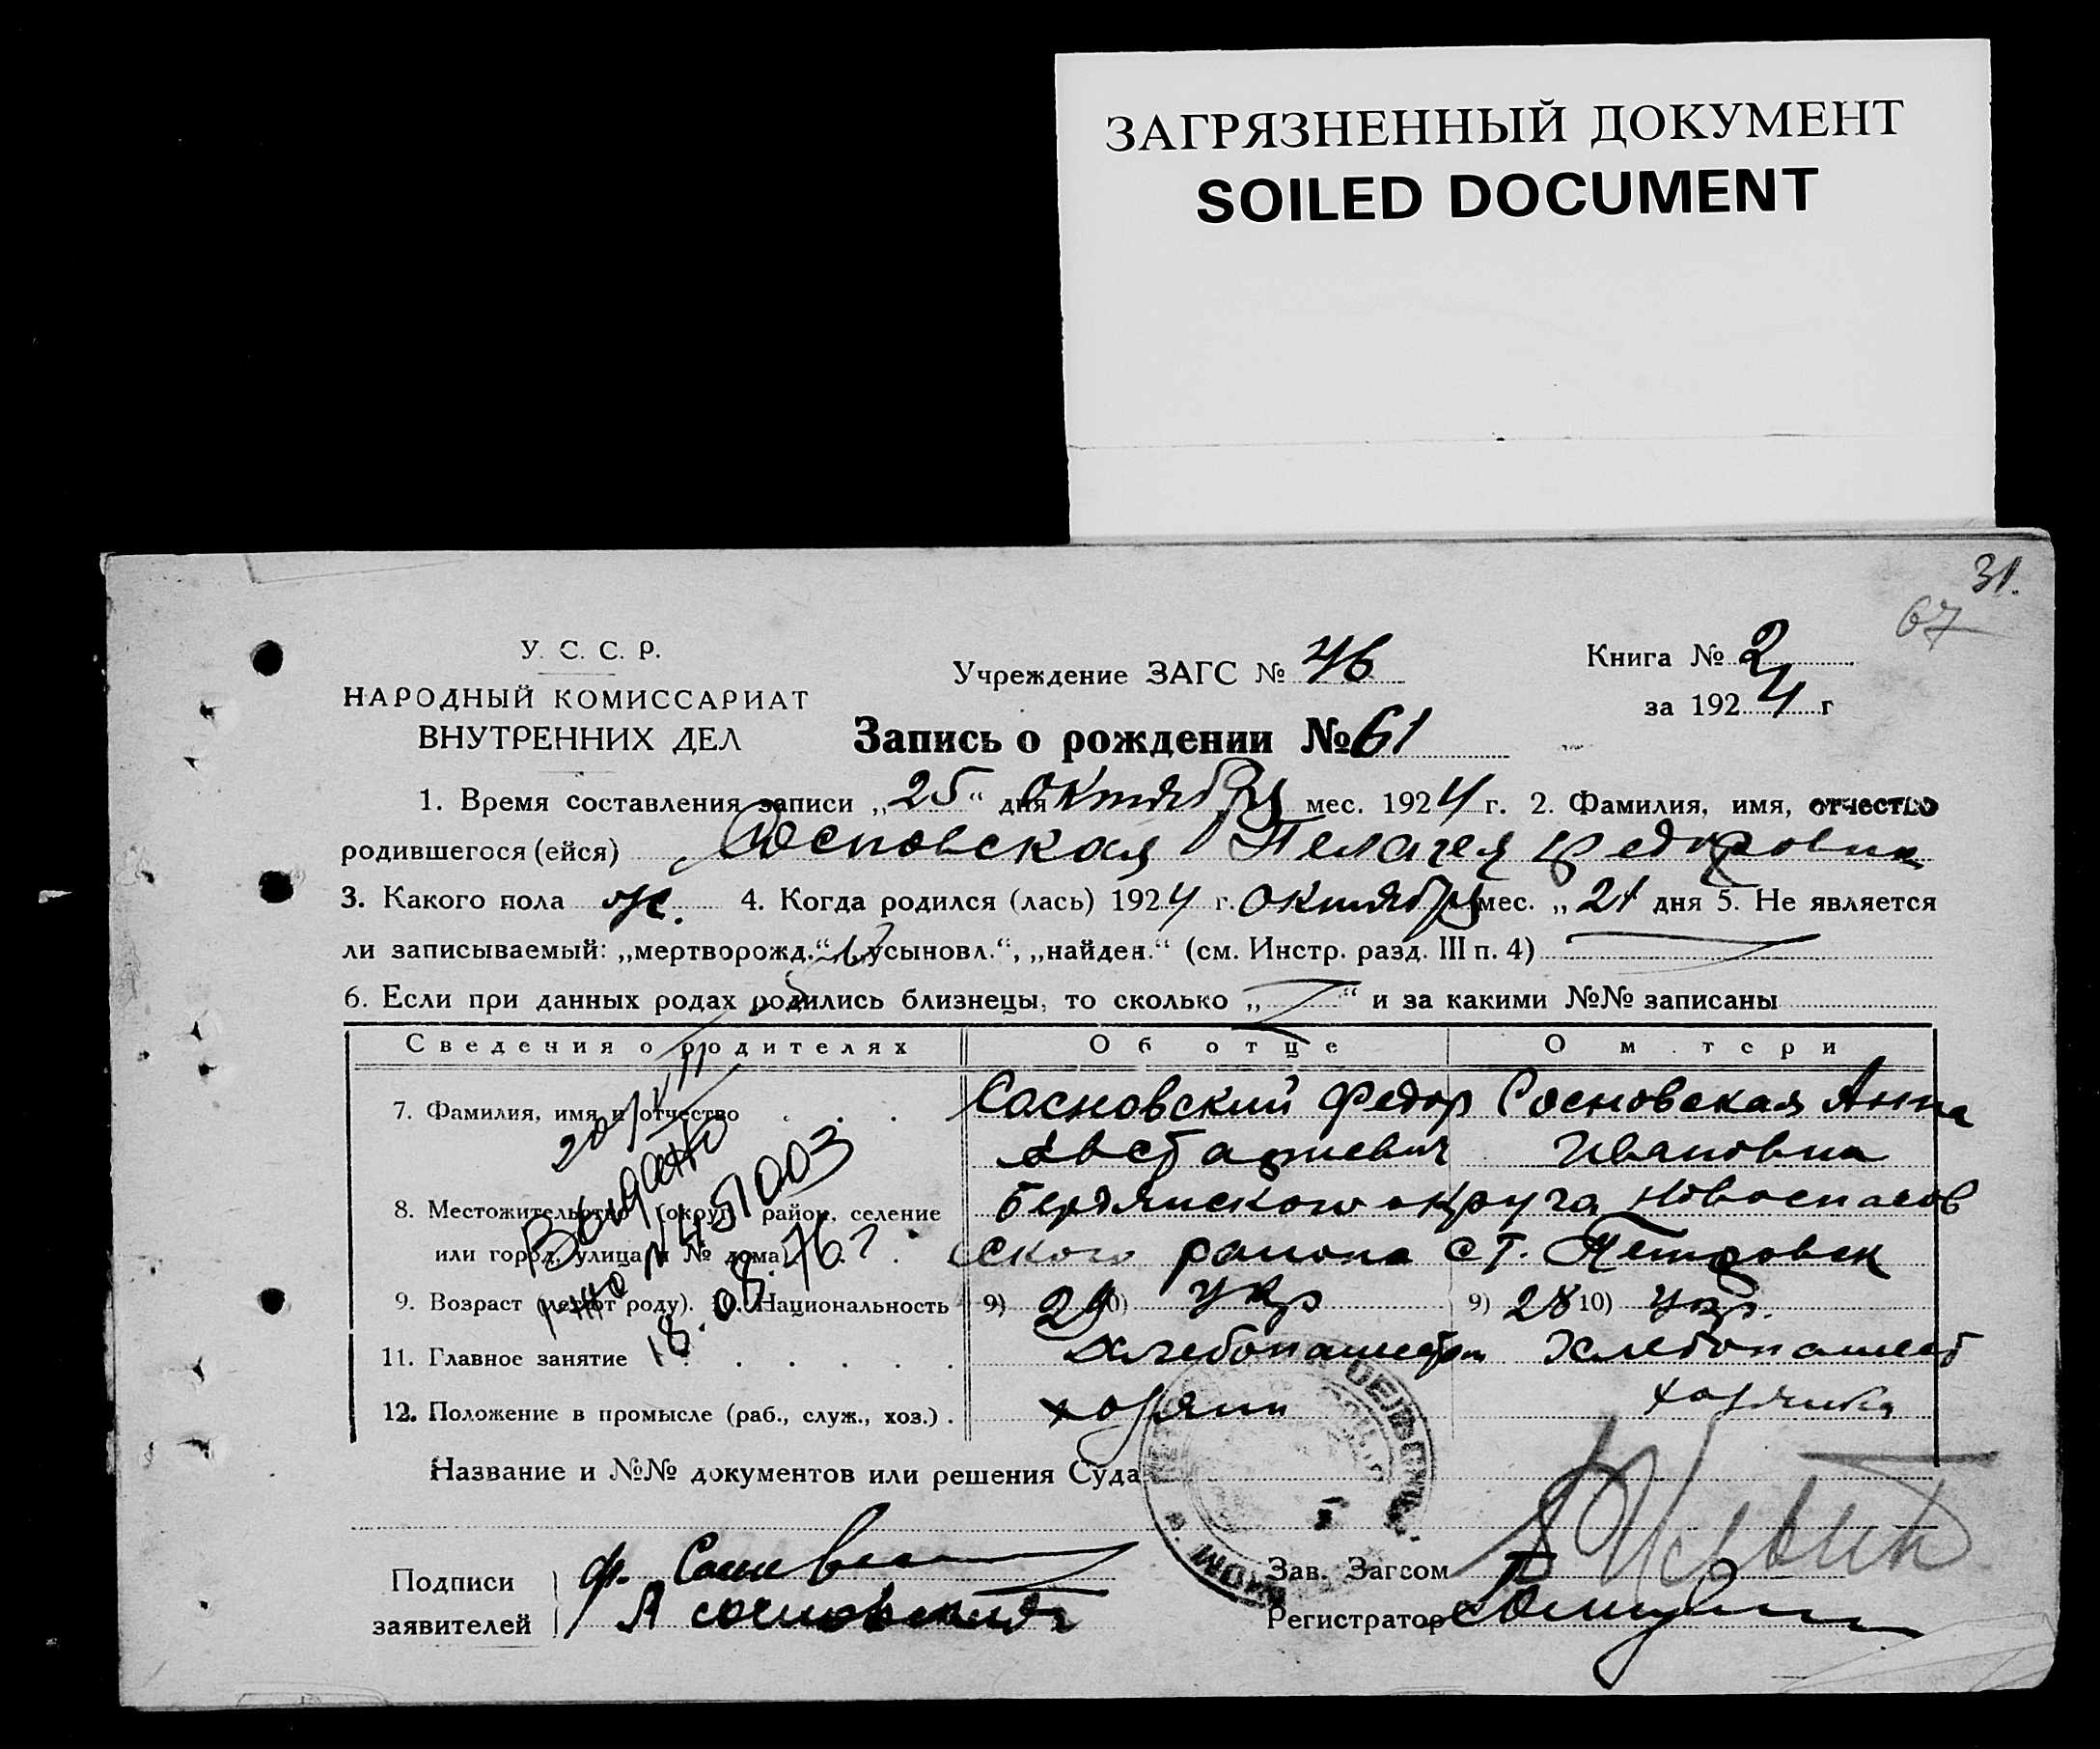 ЗАГРЯЗНЕННЫЙ ДОКУМЕНТ
SOILED DOCUMENT
31.
67
У. С. С. Р.
НАРОДНЫЙ КОМИССАРИАТ
ВНУТРЕННИХ ДЕЛ
Учреждение ЗАГС № 46
Книга № 2
за 1924 г
Запись о рождении № 61
1. Время составления записи „25“ дня октября мес. 1924 г. 2. Фамилия, имя, отчество
родившегося (ейся) Сосновская Пелагея Федоровна
3. Какого пола ж. 4. Когда родился (лась) 1924 г. октября мес. „21 дня 5. Не является
ли записываемый: „мертворожд.“ „усыновл.“, „найден.“ (см. Инстр. разд. III п. 4)
6. Если при данных родах родились близнецы, то сколько „ “ и за какими №№ записаны
Сведения о родителях Об отце О м тери
7. Фамилия, имя и отчество . . . Сасновский Федор Сосновская Анна
Ивановна
8. Местожительство (округ, район, селение Бердянского округа Новоспасов
или город, улица и № дома) ского района ст. Петровск
9. Возраст (лет от роду). 10. Национальность 9) 29 10) укр 9) 28 10) укр.
11. Главное занятие . . . . . Хлебопашество Хлебопашест
12. Положение в промысле (раб., служ., хоз.) . хозяин хозяика
Выдано
№ 451003
18.08.76 г
Название и №№ документов или решения Суда
Подписи
заявителей
Ф.
А Сосновская
Зав. Загсом
Регистратор